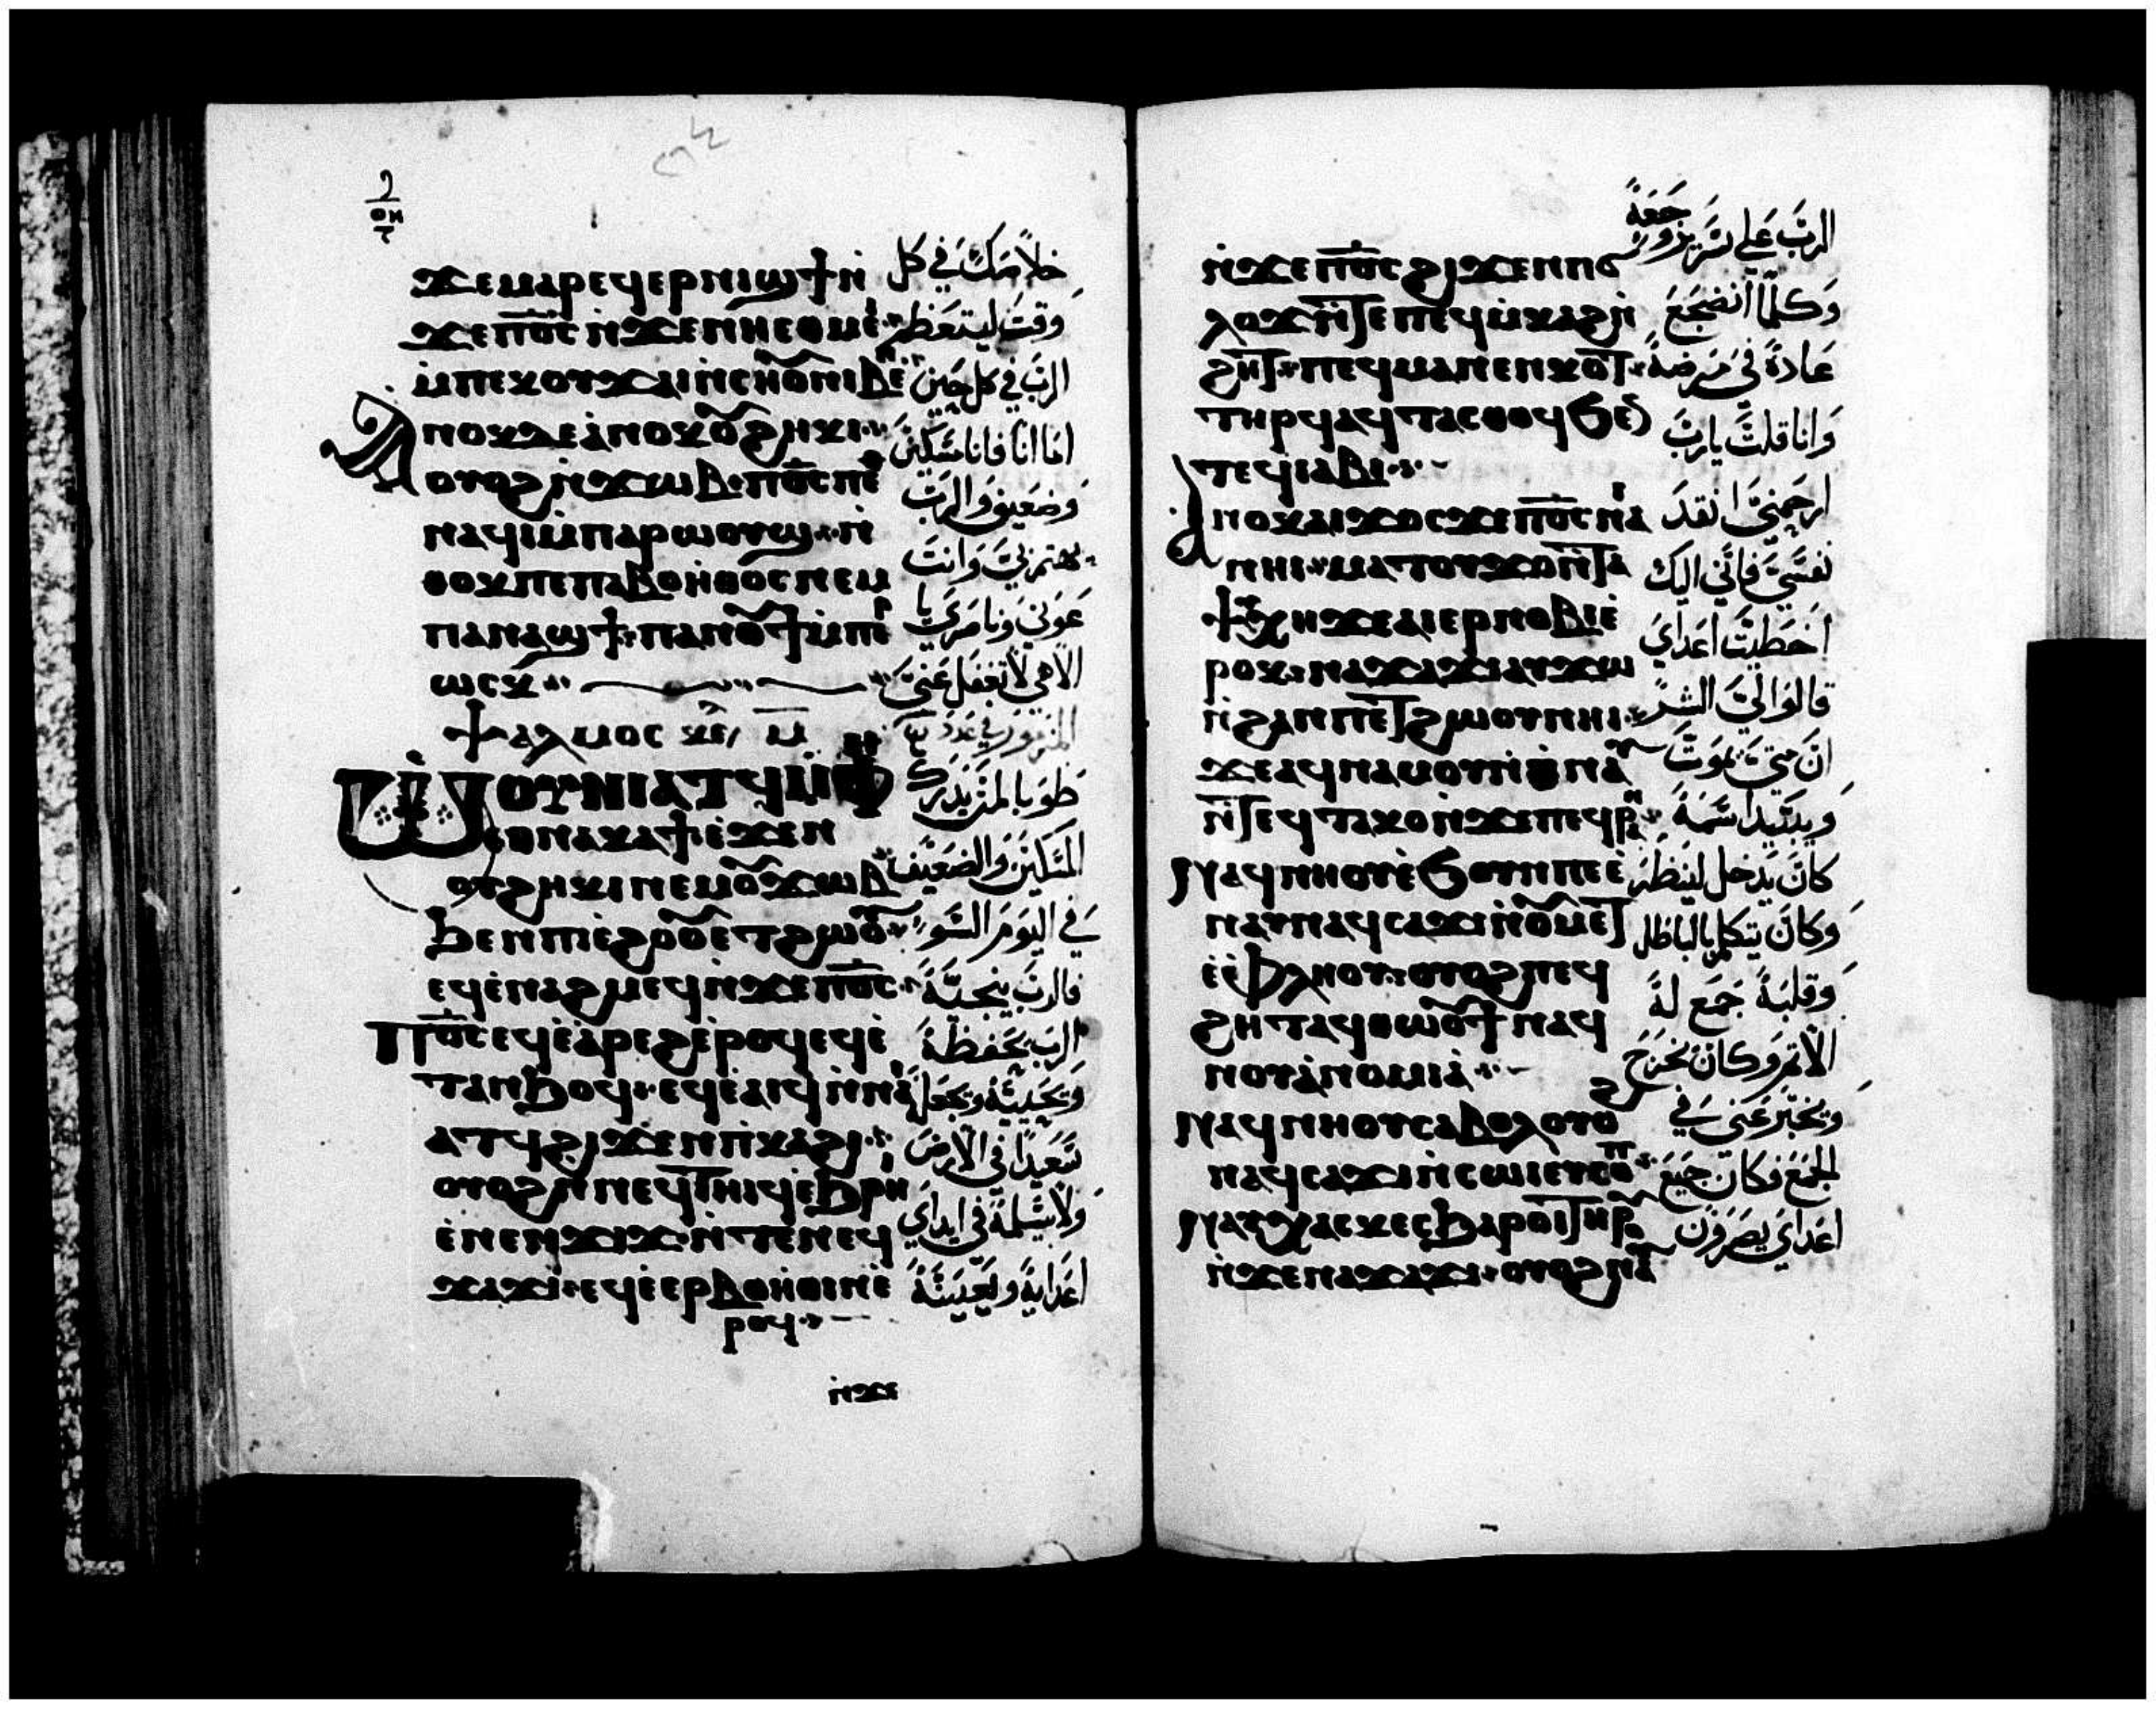 ϫⲉⲙⲁⲣⲉϥⲉⲣⲛⲓϣϯⲛ̀
ϫⲉⲡⲟ̅ⲥ̅ ⲛ̀ϫⲉⲛⲏⲉⲑⲙⲉⲓ
ⲙ̀ⲡⲉⲕⲟⲩϫⲁⲓ ⲛ̀ⲥⲏⲟⲩ ⲛⲓⲃⲉⲛ
ⲁⲛⲟⲕ ⲇⲉ ⲁ̀ⲛⲟⲕ ⲟⲩϩⲏⲕⲓ
ⲟⲩⲟϩ ⲛ̀ϫⲱⲃ ⲡⲟ̅ⲥ̅ ⲡⲉ
ⲛⲁϥⲓ ⲙ̀ⲡⲁⲣⲱⲟⲩϣ ⲛ̀
ⲑⲟⲕ ⲡⲉ ⲡⲁⲃⲟⲏ̀ⲑⲟⲥ ⲛⲉⲙ
ⲡⲁⲛⲁϣϯ ⲡⲁⲛⲟⲩϯ ⲙ̀ⲡⲣ
ⲱⲥⲕ
ⲯⲁⲗⲙⲟⲥ ⲙ̅
ⲱⲟⲩⲛⲓⲁⲧϥ ⲙ̀ⲫⲏ
ⲉⲑⲛⲁⲕⲁϯ ⲉ̀ϫⲉⲛ
ⲟⲩϩⲏⲕⲓ ⲛⲉⲙ ⲟⲩϫⲱⲃ
ϧⲉⲛ ⲡⲓⲉ̀ϩⲟⲟⲩ ⲉⲧϩⲱⲟⲩ
ⲉϥⲉ̀ⲛⲁϩⲙⲉϥ ⲛ̀ϫⲉⲡⲟ̅ⲥ̅
ⲡⲟ̅ⲥ̅ ⲉϥⲉ̀ⲁ̀ⲣⲉϩ ⲉ̀ⲣⲟϥ ⲉϥⲉ̀
ⲧⲁⲛϧⲟϥ ⲉϥⲉ̀ⲁⲓϥ ⲛ̀ⲛⲁ
ⲁⲧϥ ϩⲓϫⲉⲛ ⲡⲓⲕⲁϩⲓ
ⲟⲩⲟϩ ⲛ̀ⲛⲉϥⲧⲏⲓϥ ⲉ̀ϧⲣⲏⲓ
ⲉ̀ⲛⲉⲛϫⲓϫ ⲛ̀ⲧⲉⲛⲉϥ
ϫⲁϫⲓ ⲉϥⲉ̀ⲉⲣⲃⲟⲏ̀ⲑⲓⲛ ⲉ̀
ⲣⲟϥ
ⲛ̀ϫⲉ
خلاصك في كل
وقت ليتعظم
الرب في كل حين
اما انا فانا مسكين
وضعيف والرب
يهتم بي وانت
عوني وناصري يا
الاهي لا تغفل عني
المزمور في عدد
طوبا لمن يدرك
المسكين والضعيف
في اليوم السو
فالرب ينجيه
الرب يحفظه
ويحييه ويجعل
سعيدا في الارض
ولا يسلمه في ايداي
اعدايه ويعينه
ⲛ̀ϫⲉⲡⲟ̅ⲥ̅ ϩⲓϫⲉⲛ ⲡϭ
ⲗⲟϫ ⲛ̀ⲧⲉ ⲡⲉϥⲙ̀ⲕⲁϩ ⲛ̀
ϩⲏⲧ ⲡⲉϥⲙⲁⲛⲉⲛⲕⲟⲧ
ⲧⲏⲣϥ ⲁϥⲧⲁⲥⲑⲟϥ ϭⲉⲛ
ⲡⲉϥⲓⲁⲃⲓ
ⲁⲛⲟⲕ ⲁⲓϫⲟⲥ ϫⲉ ⲡⲟ̅ⲥ̅ ⲛⲁⲓ
ⲛⲏⲓ ⲙⲁⲧⲟⲩϫⲟ ⲛ̀ⲧⲁ
ⲯⲩⲭⲏ ϫⲉ ⲁⲓⲉⲣⲛⲟⲃⲓ ⲉ̀
ⲣⲟⲕ ⲛⲁϫⲁϫⲓ ⲁⲩϫⲱ
ⲛ̀ϩⲁⲛⲡⲉⲧϩⲱⲟⲩ ⲛⲏⲓ
ϫⲉ ⲁϥⲛⲁⲙⲟⲩ ⲛ̀ⲑⲛⲁⲩ
ⲛ̀ⲧⲉϥⲧⲁⲕⲟ ⲛ̀ϫⲉ ⲡⲉϥⲣⲁⲛ
ⲛⲁϥⲛⲏⲟⲩ ⲉ̀ϭⲟⲩⲛ ⲡⲉ ⲉ̀
ⲛⲁⲩ ⲛⲁϥⲥⲁϫⲓ ⲛ̀ⲟⲩⲙⲉⲧ
ⲉ̀ⲫⲗⲏⲟⲩ ⲟⲩⲟϩ ⲡⲉϥ
ϩⲏⲧ ⲁϥⲑⲱⲟⲩϯ ⲛⲁϥ
ⲛⲟⲩⲁ̀ⲛⲟⲙⲓⲁ
ⲛⲁϥⲛⲏⲟⲩ ⲥⲁⲃⲟⲗ ⲟⲩⲟϩ
ⲛⲁϥⲥⲁϫⲓ ⲛ̀ⲥⲱⲓ ⲉⲩⲥⲟⲡ
ⲛⲁⲩⲭⲁⲥⲕⲉⲥ ϧⲁⲣⲟⲓ ⲧⲏⲣⲟⲩ
ⲛ̀ϫⲉ ⲛⲁϫⲁϫⲓ ⲟⲩⲟϩ ⲛⲁⲩ
الرب على سرير وجعه
وكلما انضجع
عادة في مرضه
وانا قلت يارب
ارحمني انقد
نفسي فاني اليك
اخطيت اعداي
قالوا لي الشر
ان متي يموت
ويبيد اسمه
كان يدخل لينظر
وكان يتكلم بالباطل
وقلبه جمع له
الاثم وكان يخرج
ويخبر عني في
الجمع وكان جميع
اعداي يصرون